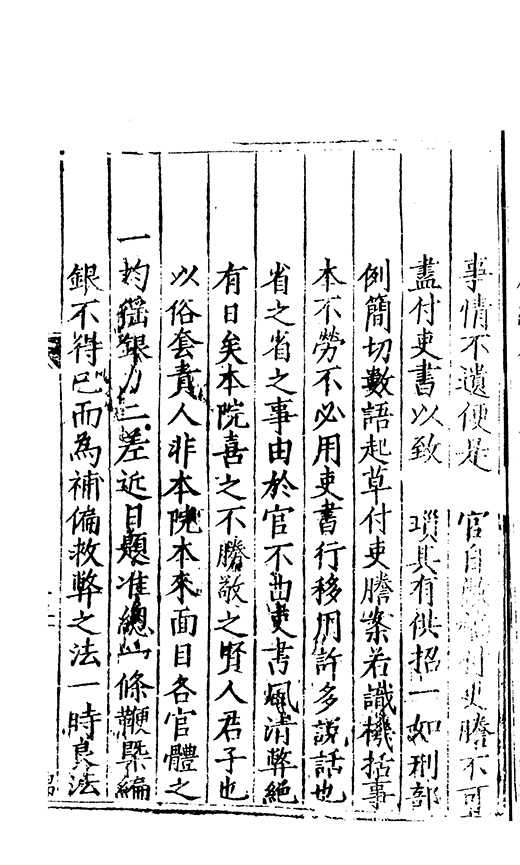 事情不遺便是　官自　付吏謄不可
盡付吏書以致　瑣具有供招一如刑部
例簡切數語起草付吏謄案若識機括事
本不勞不必用吏書行移用許多說話也
省之省之事由於官不由吏書風清弊絕
有日矣本院喜之不勝敬之賢人君子也
以俗套責人非本院本來面目各官體之
一均徭銀力二差近日題准總　條鞭槩編
銀不得已而為補偏救弊之法一時良法